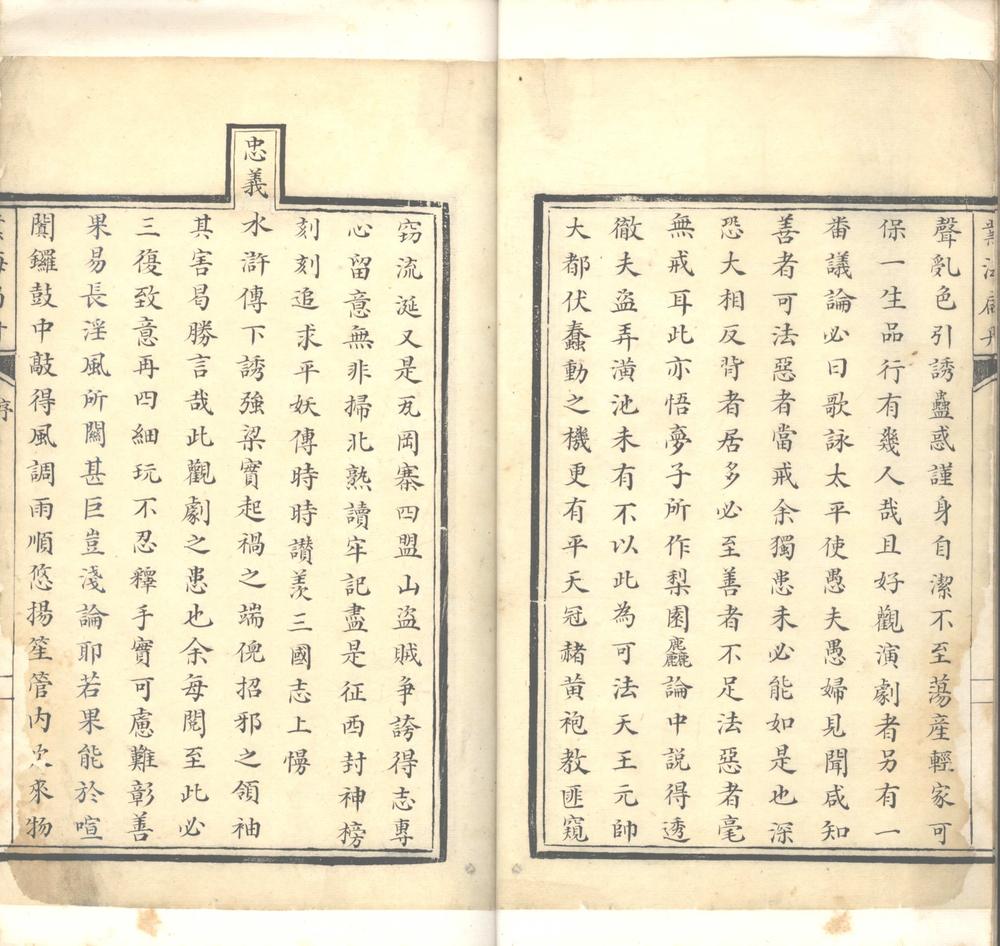 聲亂色引誘蠱惑謹身自潔不至蕩產輕家可
保一生品行有幾人哉且好觀演劇者另有一
番議論必曰歌詠太平使愚夫愚婦見聞咸知
善者可法惡者當戒余獨患未必能如是也深
恐大相反背者居多必至善者不足法惡者毫
無戒耳此亦悟夢子所作梨園麤論中説得透
徹夫盜弄潢池未有不以此為可法天王元帥
大都伏蠢動之機更有平天冠赭黃袍教匪窺
竊流涎又是瓦岡寨四盟山盜賊爭誇得志專
心留意無非掃北熟讀牢記盡是征西封神榜
刻刻追求平妖傳時時讚羨三國志上慢
忠義水滸傳下誘強梁實起禍之端倪招邪之領袖
其害曷勝言哉此觀劇之患也余每閱至此必
三復致意再四細玩不忍釋手實可慮難彰善
果易長淫風所關甚巨豈淺論耶若果能於喧
闐鑼鼓中敲得風調雨順悠揚笙管內次來物
序